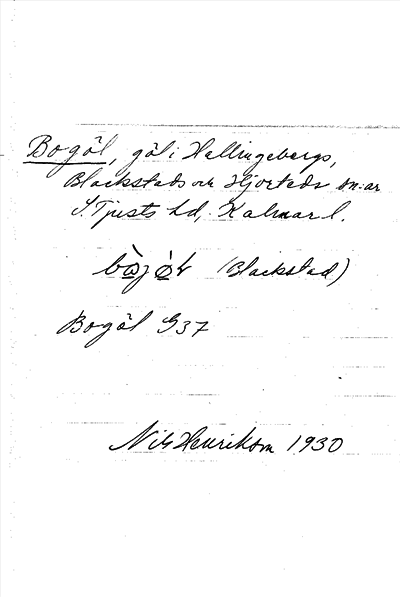 Bogöl, göl i Hallingebergs,
Blackstads och Hjorteds sn:ar
S. Tjusts hd, Kalmar l.
(Blackstad)
Bogöl G37
Nils Henrikson 1930